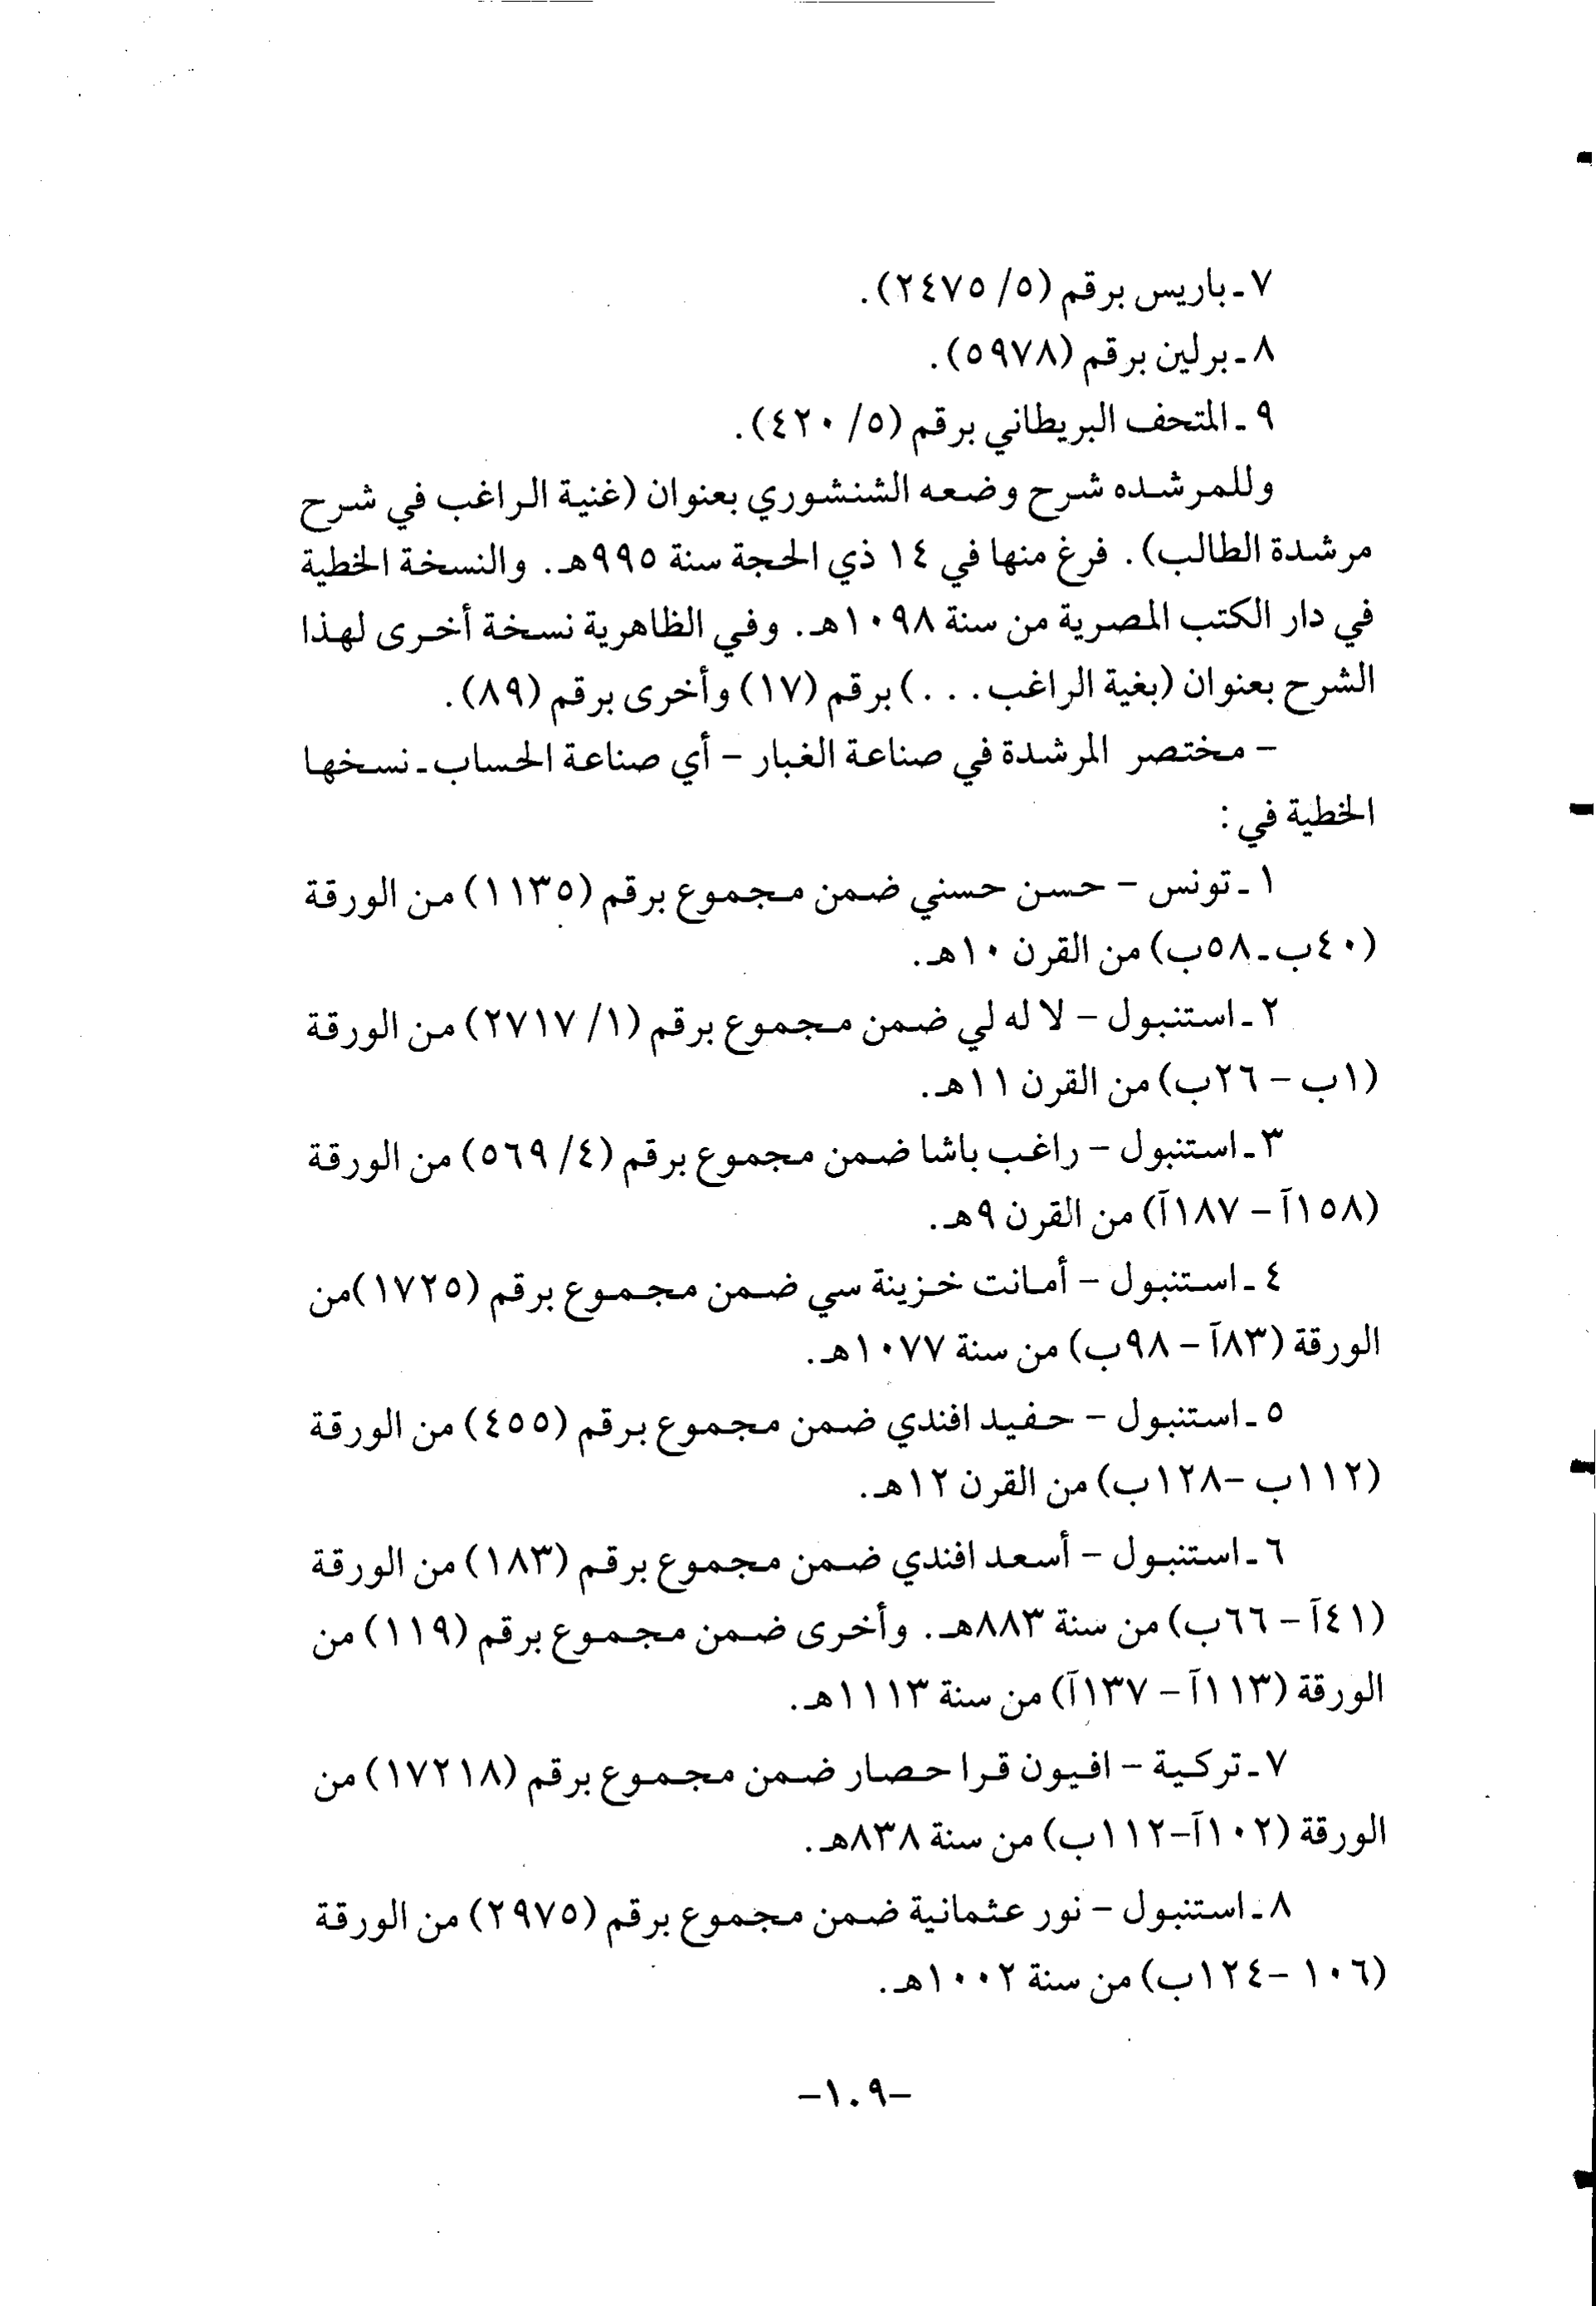 ٧ـ باريس برقم (٥/ ٢٤٧٥).
٨ـ برلين برقم (٥٩٧٨).
٩ـ المتحف البريطاني برقم (٥/ ٤٢٠).
وللمرشده شرح وضعه الشنشوري بعنوان (غنية الراغب في شرح
مرشدة الطالب). فرغ منها في ١٤ ذي الحجة سنة ٩٩٥هـ. والنسخة الخطية
في دار الكتب المصرية من سنة ١٠٩٨هـ. وفي الظاهرية نسخة أخرى لهذا
الشرح بعنوان (بغية الراغب...) برقم (١٧) وأخرى برقم (٨٩).
– مختصر المرشدة في صناعة الغبار – أي صناعة الحساب ـ نسخها
الخطية في:
١ـ تونس – حسن حسني ضمن مجموع برقم (١١٣٥) من الورقة
(٤٠ب ـ ٥٨ب) من القرن ١٠هـ.
٢ـ استنبول – لا له لي ضمن مجموع برقم (١/ ٢٧١٧) من الورقة
(١ب – ٢٦ب) من القرن ١١هـ.
٣ـ استنبول – راغب باشا ضمن مجموع برقم (٤/ ٥٦٩) من الورقة
(١٥٨آ – ١٨٧آ) من القرن ٩هـ.
٤ـ استنبول – أمانت خزينة سي ضمن مجموع برقم (١٧٢٥)من
الورقة (٨٣آ – ٩٨ب) من سنة ١٠٧٧هـ.
٥ـ استنبول – حفيد افندي ضمن مجموع برقم (٤٥٥) من الورقة
(١١٢ب –١٢٨ب) من القرن ١٢هـ.
٦ـ استنبول – أسعد افندي ضمن مجموع برقم (١٨٣) من الورقة
(٤١آ – ٦٦ب) من سنة ٨٨٣هـ. وأخرى ضمن مجموع برقم (١١٩) من
الورقة (١١٣آ – ١٣٧آ) من سنة ١١١٣هـ.
٧ـ تركية – افيون قرا حصار ضمن مجموع برقم (١٧٢١٨) من
الورقة (١٠٢آ–١١٢ب) من سنة ٨٣٨هـ.
٨ـ استنبول – نور عثمانية ضمن مجموع برقم (٢٩٧٥) من الورقة
(١٠٦ –١٢٤ب) من سنة ١٠٠٢هـ.
–١٠٩–